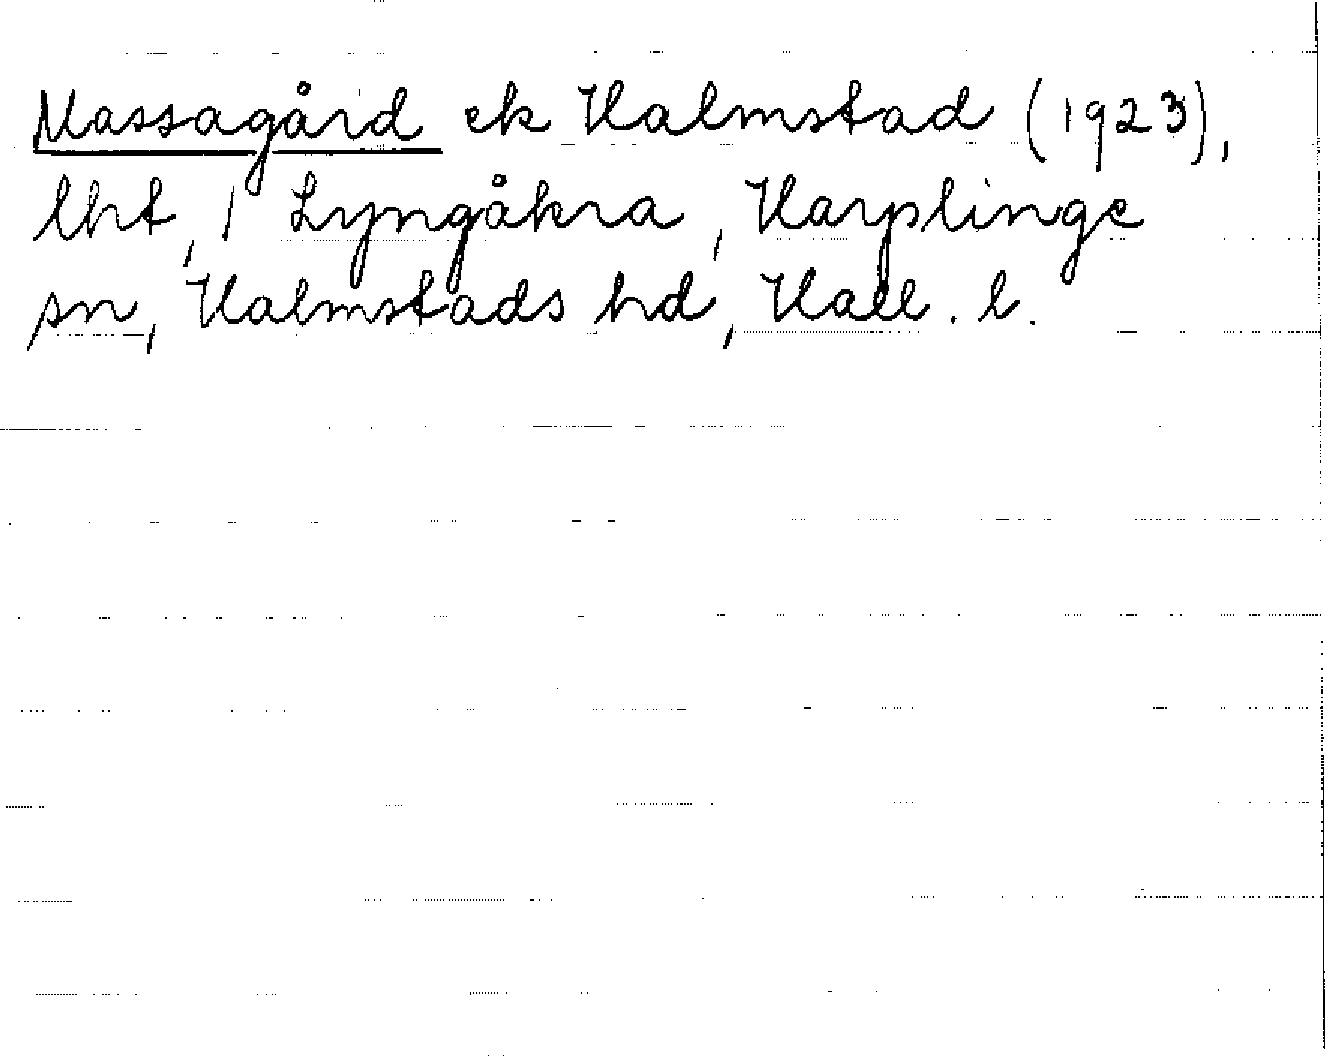 Massagård ek Halmstad (1923),
lht, 1 Lyngåkra, Harplinge
sn, Halmstads hd, Hall. l.